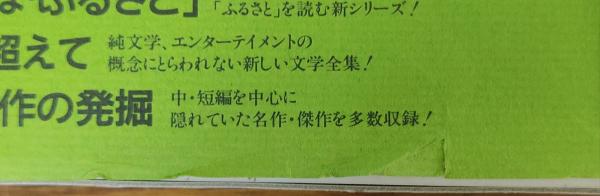 ふるさと」
「ふるさと」を読む新シリーズ!
超えて
純文学、エンターテイメントの
概念にとらわれない新しい文学全集!
作の発掘
中・短編を中心に
隠れていた名作・傑作を多数収録!